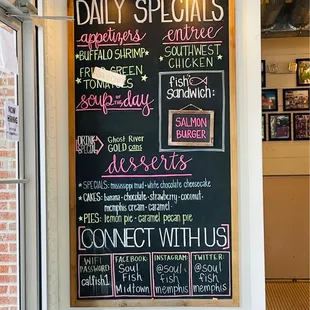 DAILY SPECIALS
appetizers
BUFFALO SHRIMP
FRIED GREEN
TOMATOES
soup of the day
entree
SOUTHWEST
CHICKEN
fish
sandwich:
SALMON
BURGER
DRINK
SPECIAL
Ghost River
GOLD cans
desserts
SPECIALS: mississippi mud - white chocolate cheesecake
CAKES: banana - chocolate - strawberry - coconut -
memphis cream - caramel
PIES: lemon pie - caramel pecan pie
CONNECT WITH US
WIFI
PASSWORD
catfish1
FACEBOOK:
Soul
Fish
Midtown
INSTAGRAM:
@soul
fish
memphis
TWITTER:
@soul
fish
memphis